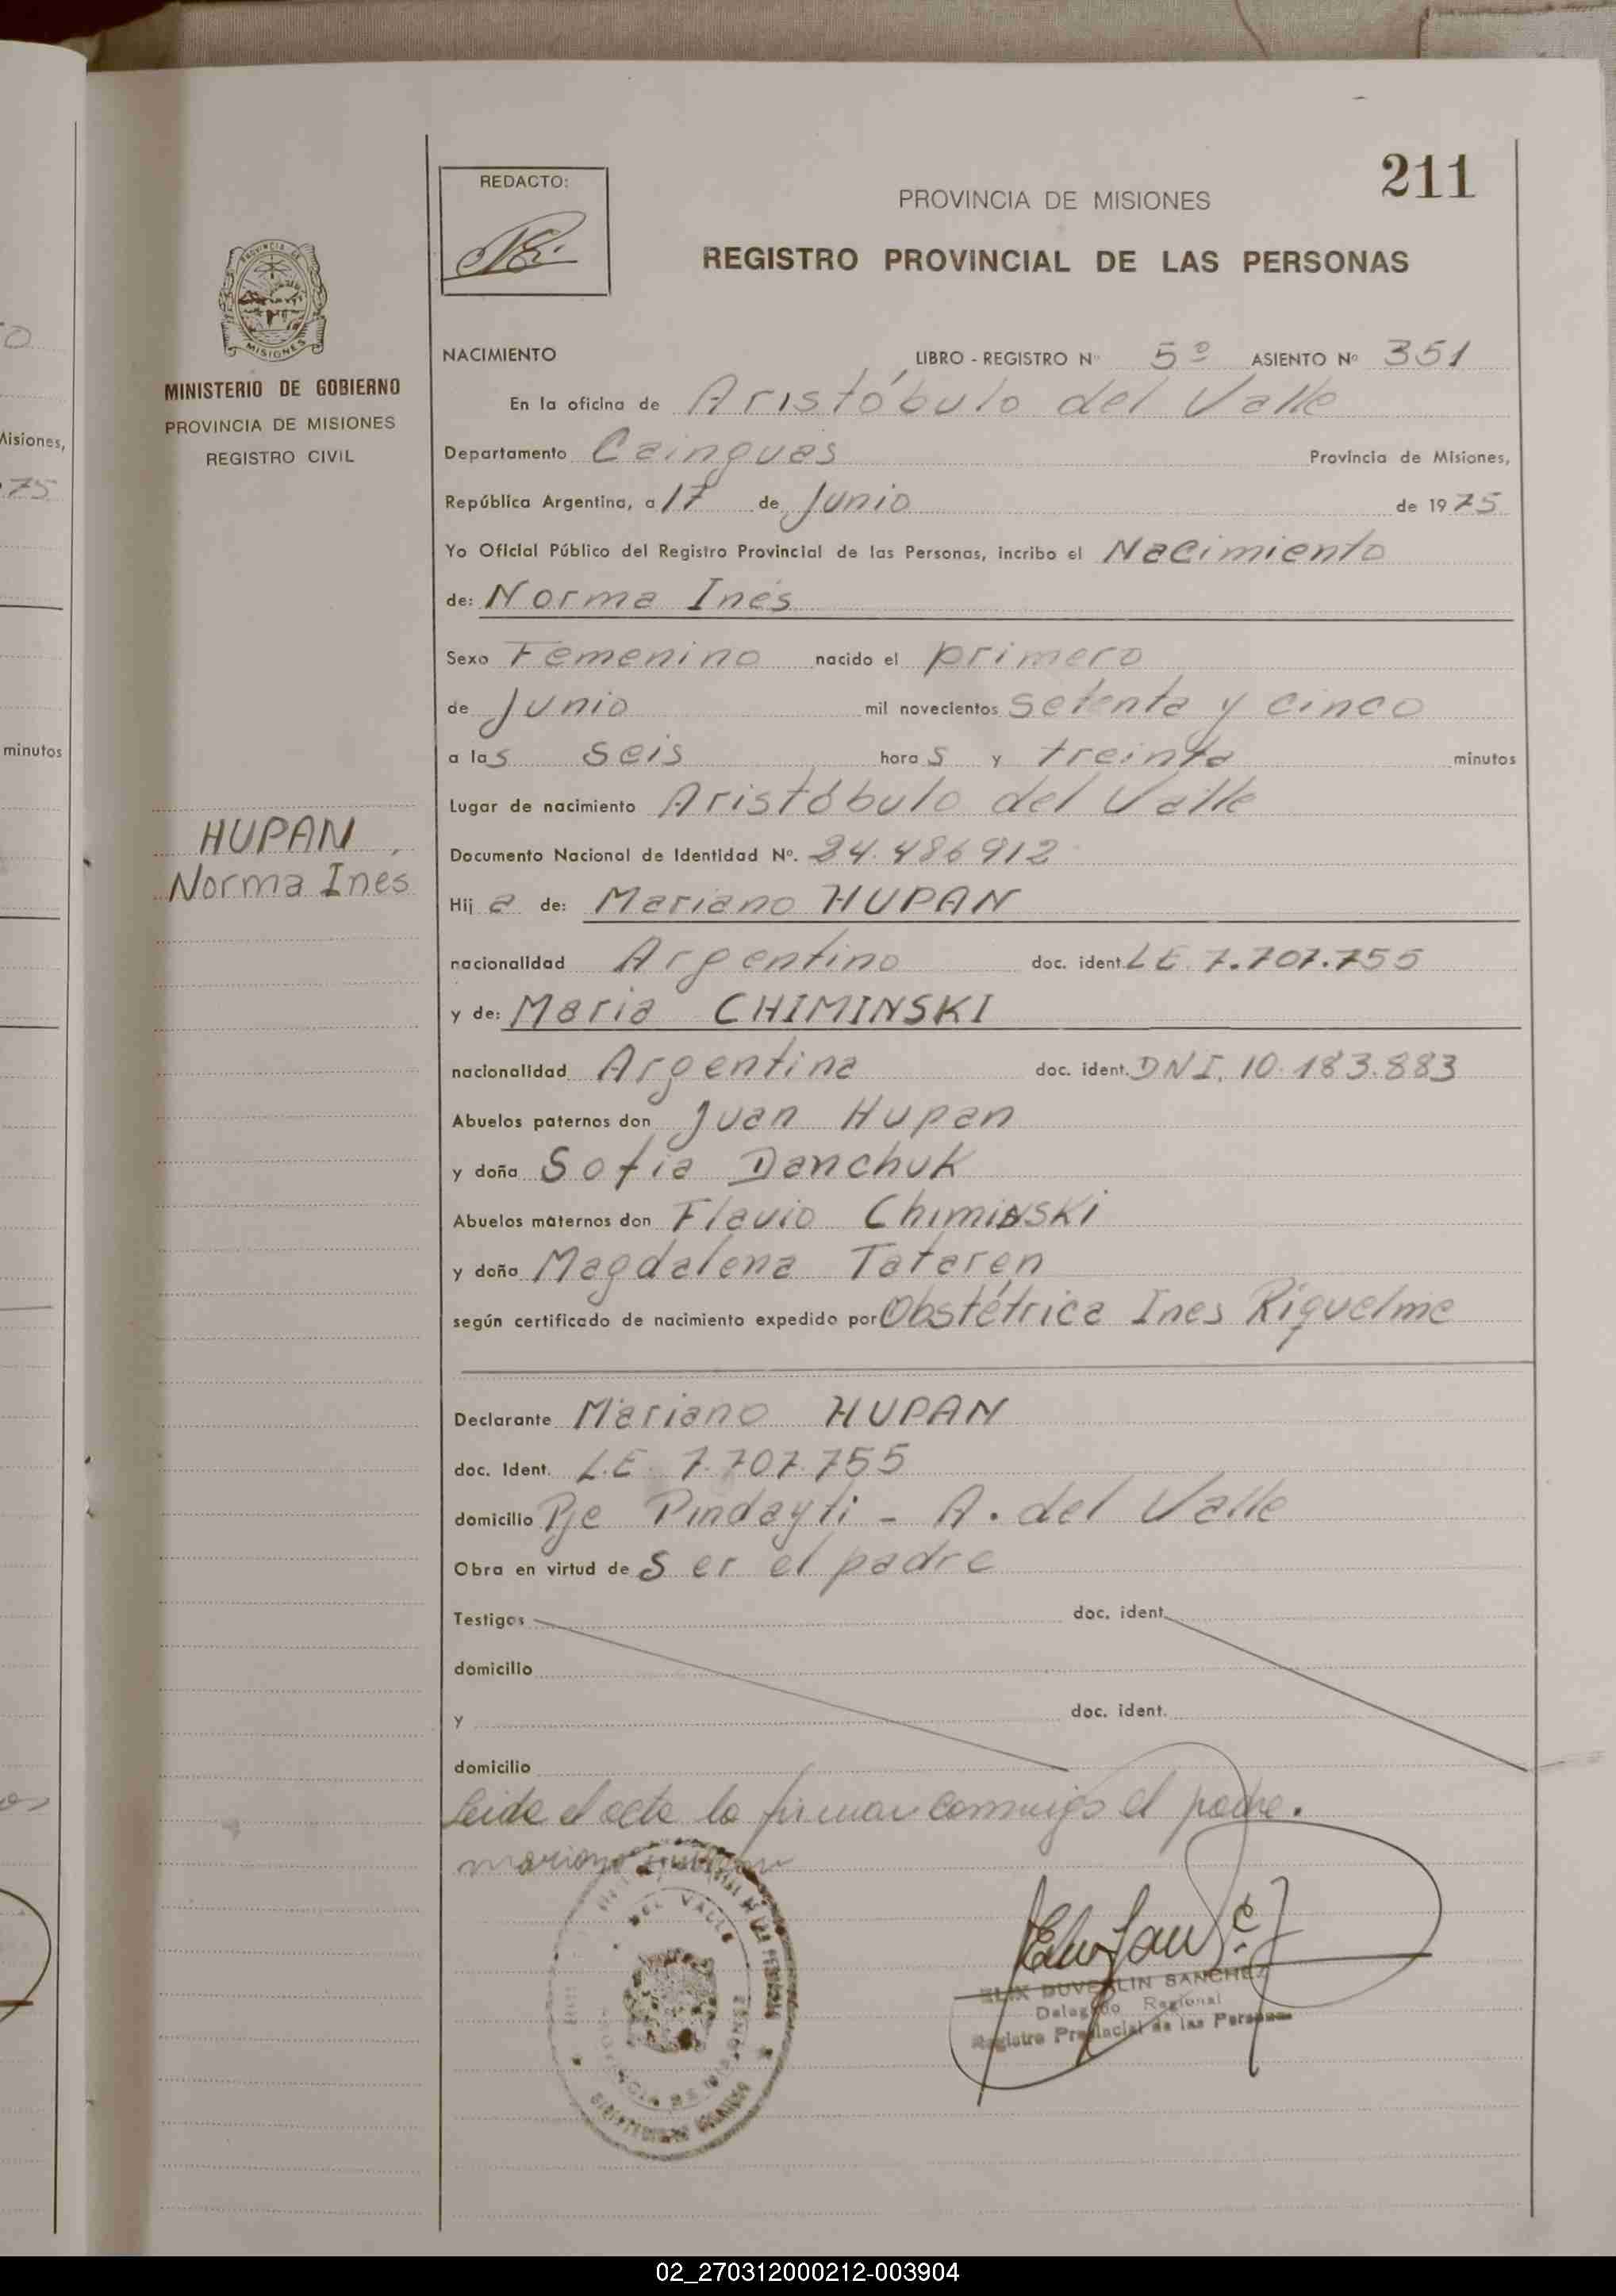 211
REDACTO:
PROVINCIA DE MISIONES
REGISTRO PROVINCIAL DE LAS PERSONAS
PROVINCIA DE
MISIONES
MINISTERIO DE GOBIERNO
PROVINCIA DE MISIONES
REGISTRO CIVIL
Misiones,
75
minutos
HUPAN,
Norma Ines
NACIMIENTO LIBRO - REGISTRO Nº 5º ASIENTO Nº 351
En la oficina de Aristóbulo del Valle
Departamento Cainguas Provincia de Misiones,
República Argentina, a 17 de Junio de 1975
Yo Oficial Público del Registro Provincial de las Personas, incribo el Nacimiento
de: Norma Inés
Sexo Femenino nacido el primero
de Junio mil novecientos setenta y cinco
a las seis horas y treinta minutos
Lugar de nacimiento Aristóbulo del Valle
Documento Nacional de Identidad Nº. 24.486912
Hija de: Mariano HUPAN
nacionalidad Argentino doc. ident. LE. 7.707.755
y de: Maria CHIMINSKI
nacionalidad Argentina doc. ident. DNI. 10.183.883
Abuelos paternos don Juan Hupan
y doña Sofia Danchuk
Abuelos maternos don Flavio Chiminski
y doña Magdalena Tataren
según certificado de nacimiento expedido por Obstétrica Ines Riquelme
Declarante Mariano HUPAN
doc. Ident. L.E. 7.707.755
domicilio Pje Pindayti - A. del Valle
Obra en virtud de Ser el padre
Testigos doc. ident.
domicilio
y doc. ident.
domicilio
Leida el acta la firman conmigo el padre.
DEL VALLE
PROVINCIA DE MISIONES
MINISTERIO DE GOBIERNO
DUVERLIN SANCHEZ
Delegado Regional
Registro Provincial de las Personas
02_270312000212-003904